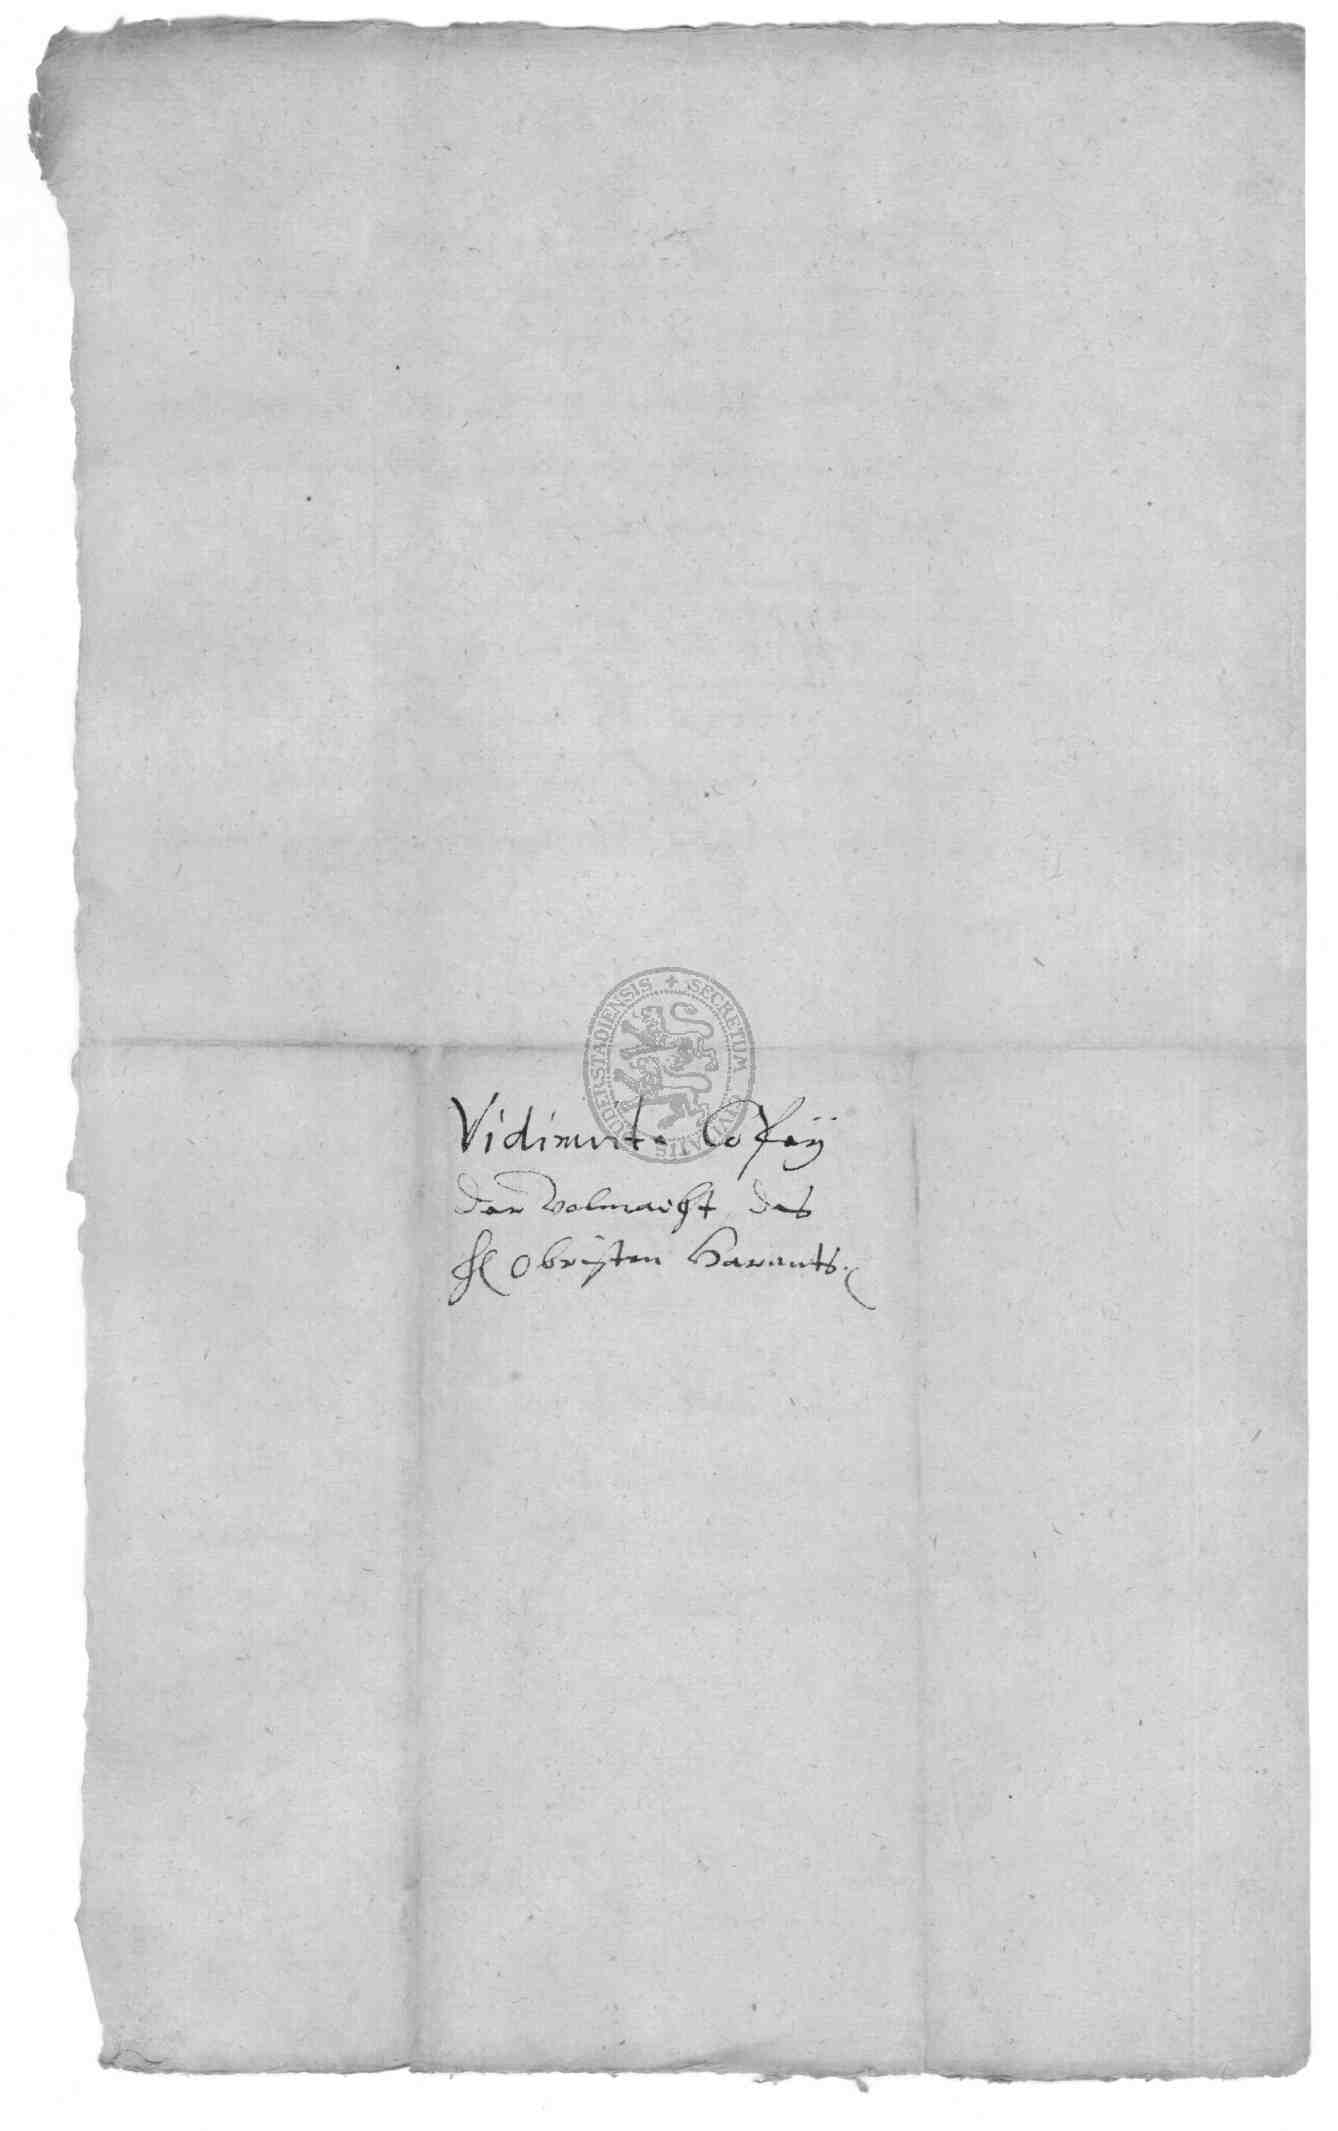 SECRETUM CIVITATIS DUDERSTADIENSIS
Vidimirte Copeÿ
der volmacht des
H Obristen Harants.